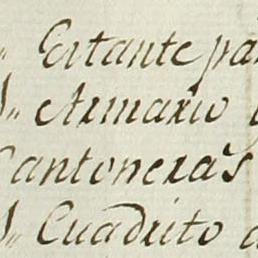 Estante pa
Armario
Cantoneras
Cuadrito d